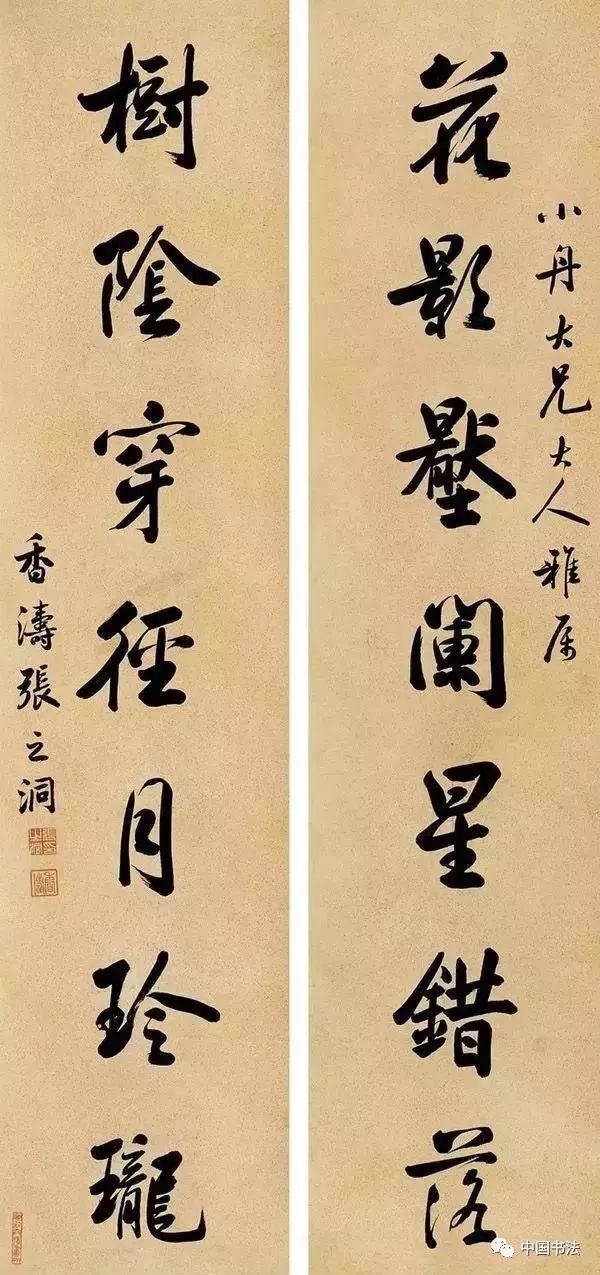 小舟大兄大人雅属
花影壓闌星錯落
樹陰穿徑月玲瓏
香濤張之洞
中国书法